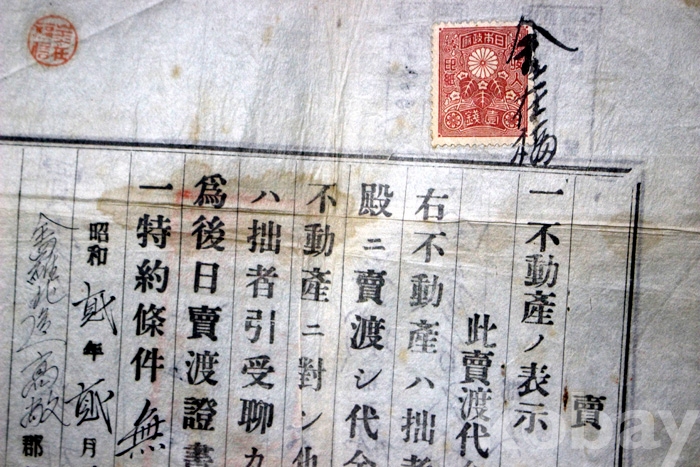 日本政府
收入
印紙
壹錢
金
賣
一不動産ノ表示
此賣渡代
右不動産ハ拙者
殿ニ賣渡シ代金
不動産ニ對シ他
ハ拙者引受聊カ
爲後日賣渡證書
一特約條件 無
昭和貳年貳月
全羅北道高敞郡
kobay